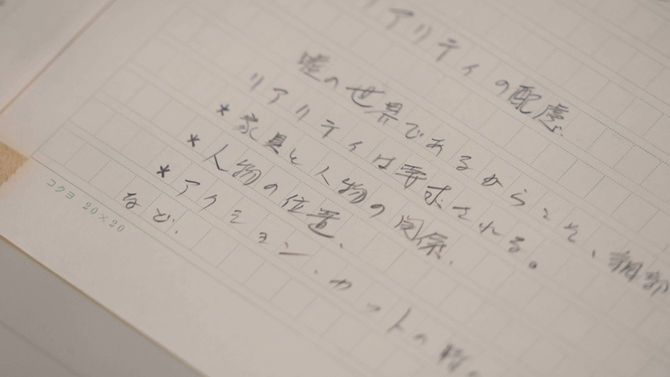 リアリティの配慮.
嘘の世界であるからこそ、細部
リアリティは要求される。
*家具と人物の関係.
*人物の位置.
*アクション.カットの
など.
コクヨ 20×20